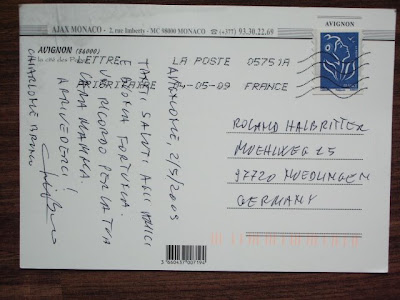 AJAX MONACO - 2, rue Imberty - MC 98000 MONACO ☎ (+377) 93.30.22.69
AVIGNON
AVIGNON (84000)
La cité des Pa
LETTRE
PRIORITAIRE
LA POSTE 05751A
4-05-09 FRANCE
AVIGNONE, 2/5/2009
TANTI SALUTI AGLI AMICI
E BUONA FORTUNA.
UN RICORDO PER LA TUA
CARA MAMMA
ARRIVEDERCI!
ROLAND HALBRITTER
MUEHLWEG 15
97720 NUEDLINGEN
GERMANY
3 660437 007194